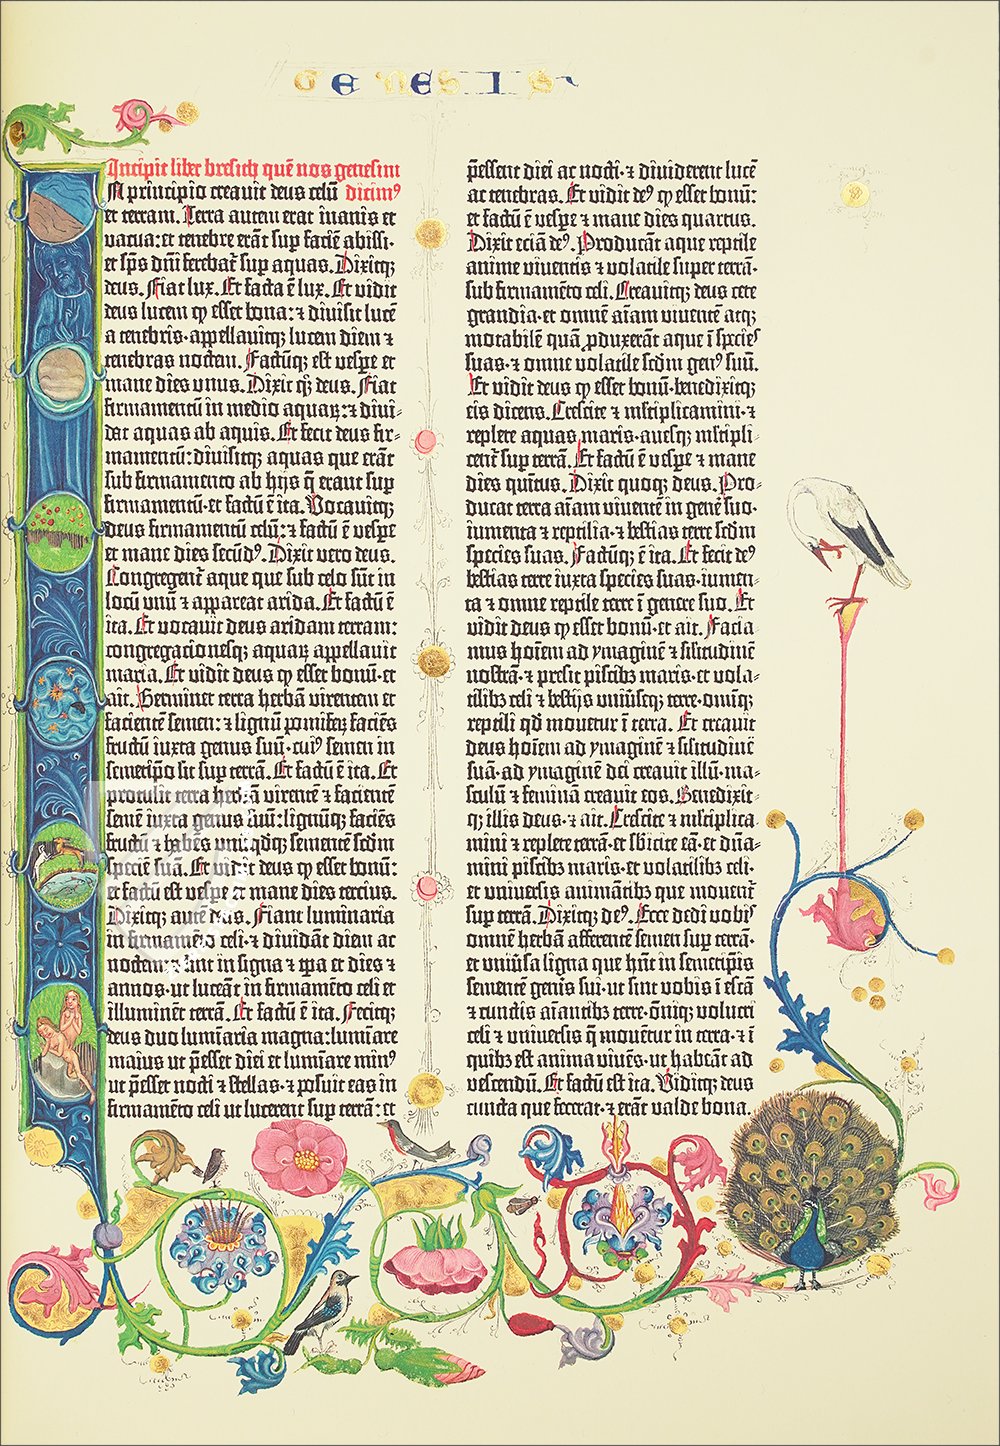 GENESIS
Incipit liber bresich quē nos genesim
IN principio creavit deus celū dicimꝰ
et terram. Terra autem erat inanis et
vacua: et tenebre erāt sup faciē abissi·
et sp̄s dn̄i ferebat᷑ sup aquas. Dixitqꝫ
deus. Fiat lux. Et facta ē lux. Et vidit
deus lucem ꝙ esset bona: ⁊ divisit lucē
a tenebris· appellavitqꝫ lucem diem ⁊
tenebras noctem. Factūqꝫ est vespe et
mane dies unus. Dixit qꝫ deus. Fiat
firmamentū in medio aquaꝝ: ⁊ divi-
dat aquas ab aquis. Et fecit deus fir-
mamentū: divisitqꝫ aquas que erāt
sub firmamento ab hijs q̄ erant sup
firmamentū· et factū ē ita. Vocavitqꝫ
deus firmamentū celū: ⁊ factū ē vespe
et mane dies secūdꝰ. Dixit vero deus.
Congregent᷑ aque que sub celo sūt in
locū unū ⁊ appareat arida. Et factū ē
ita. Et vocavit deus aridam terram:
congregacionesqꝫ aquaꝝ appellavit
maria. Et vidit deus ꝙ esset bonū· et
ait. Germinet terra herbā virentem et
facientē semen: ⁊ lignū pomiferꝫ faciēs
fructū iuxta genus suū· cuiꝰ semen in
semetipo sit sup terrā. Et factū ē ita. Et
protulit terra herbā virentē ⁊ facientē
semē iuxta genus suū: lignūqꝫ faciēs
fructū ⁊ habēs unūqdqꝫ sementē scdm
speciē suā. Et vidit deus ꝙ esset bonū:
et factū est vespe et mane dies tercius.
Dixitqꝫ autē deus. Fiant luminaria
in firmamēto celi· ⁊ dividāt diem ac
noctem· ⁊ sint in signa ⁊ tp̄a et dies ⁊
annos· ut luceāt in firmamēto celi et
illuminēt terrā. Et factū ē ita. Fecitqꝫ
deus duo luminaria magna: lumīare
maius ut p̄esset diei et lumīare minꝰ
ut p̄esset nocti ⁊ stellas· ⁊ posuit eas in
firmamēto celi ut lucerent sup terrā: et
p̄essent diei ac nocti· ⁊ dividerent lucē
ac tenebras. Et vidit deꝰ ꝙ esset bonū:
et factū ē vespe ⁊ mane dies quartus.
Dixit eciā deꝰ. Producāt aque reptile
anime viventis ⁊ volatile super terrā·
sub firmamēto celi. Creavitqꝫ deus cete
grandia· et omnē aīam viventē atqꝫ
motabilē quā pduxerāt aque ī species
suas· ⁊ omne volatile scdm genꝰ suū.
Et vidit deus ꝙ esset bonū· benedixitqꝫ
eis dicens. Crescite ⁊ mltiplicamini· ⁊
replete aquas maris· avesqꝫ mltipli-
cent᷑ sup terrā. Et factū ē vespe ⁊ mane
dies quītus. Dixit quoqꝫ deus. Pro-
ducat terra aīam viventē in genē suo·
iumenta ⁊ reptilia· ⁊ bestias terre scdm
species suas. Factūqꝫ ē ita. Et fecit deꝰ
bestias terre iuxta species suas· iumen-
ta ⁊ omne reptile terre ī genere suo. Et
vidit deus ꝙ esset bonū· et ait. Facia-
mus hoīem ad ymaginē ⁊ silitudinē
nostrā· ⁊ presit piscibꝫ maris· et vola-
tilibꝫ celi ⁊ bestijs univ̄seqꝫ terre· omīqꝫ
reptili qd movetur ī terra. Et creavit
deus hoīem ad ymaginē ⁊ silitudinē
suā· ad ymaginē dei creavit illū· ma-
sculū ⁊ feminā creavit eos. Benedixit-
qꝫ illis deus· ⁊ ait. Crescite ⁊ mltiplica-
mini ⁊ replete terrā· et sbicite eā· et dn̄a-
mini piscibꝫ maris· et volatilibꝫ celi·
et universis animātibꝫ que movent᷑
sup terrā. Dixitqꝫ deꝰ. Ecce dedi vobis
omnē herbā afferentē semen sup terrā·
et univ̄sa ligna que hn̄t in semetip̄is
sementē genis sui· ut sint vobis ī escā
⁊ cunctis aīantibꝫ terre· om̄iqꝫ volucri
celi ⁊ universis q̄ movētur in terra· ⁊ ī
quibꝫ est anima vivēs· ut habeāt ad
vescendū. Et factū est ita. Viditqꝫ deus
cuncta que fecerat· ⁊ erāt valde bona.